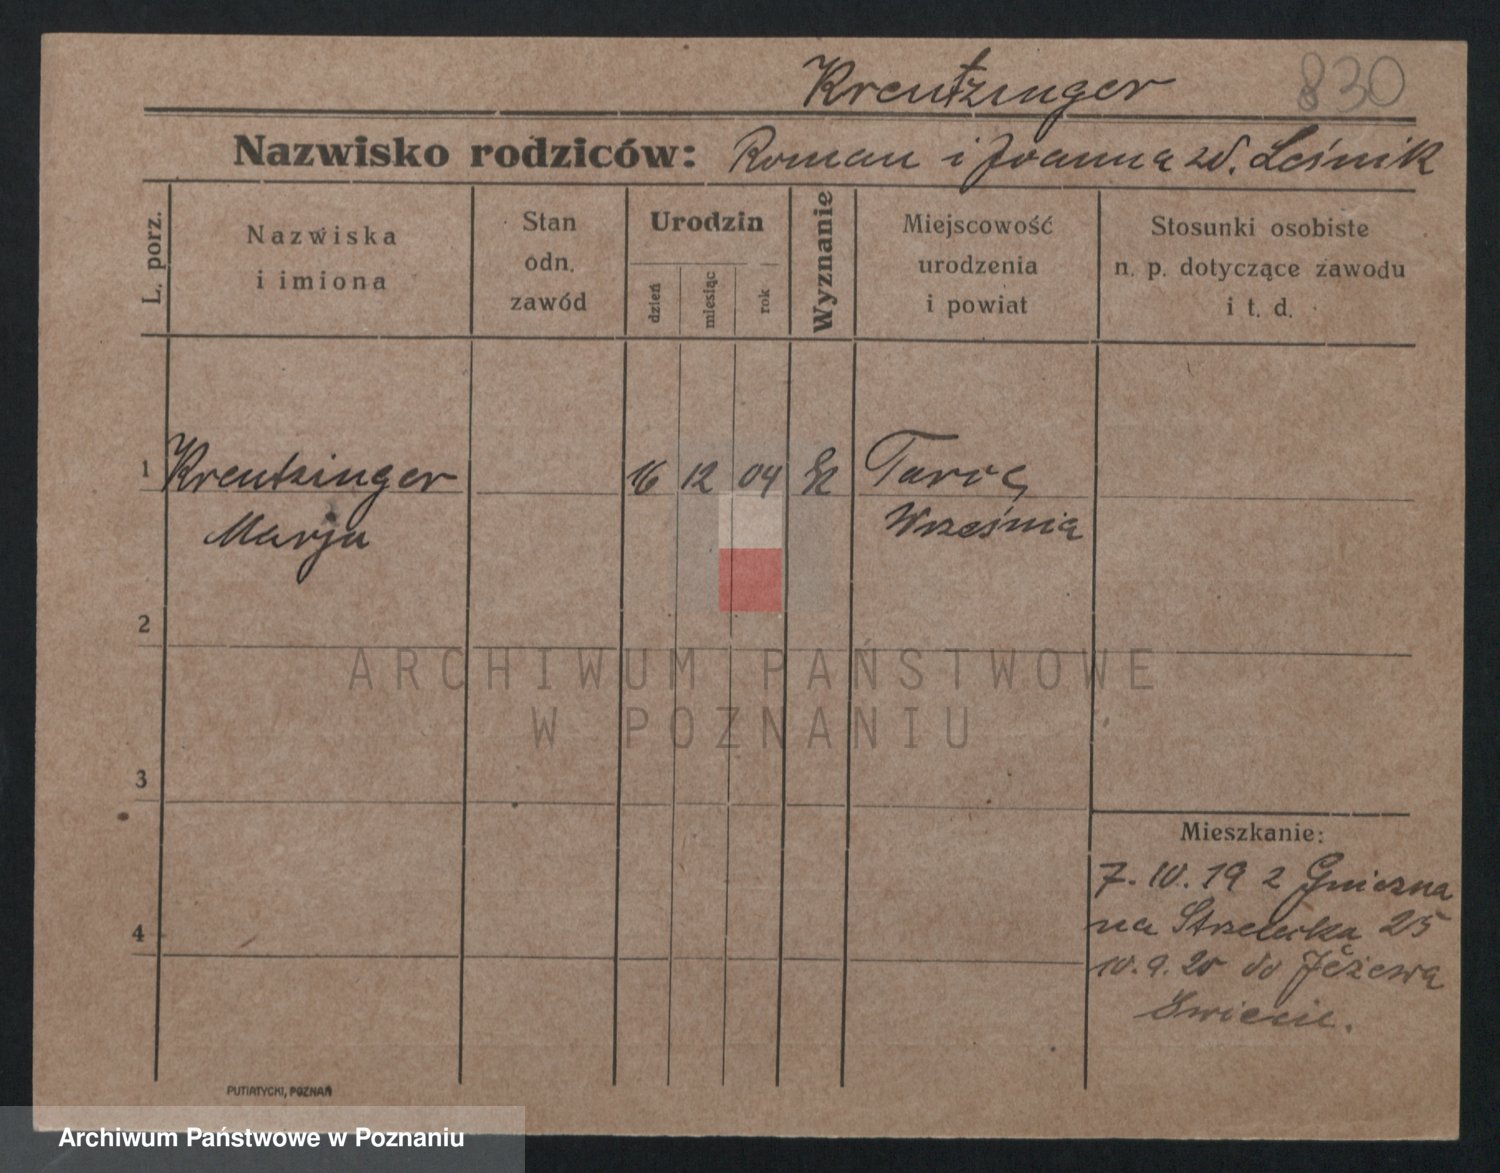 Kreutzinger 830
Nazwisko rodziców: Roman i Joanna zd. Leśnik
L. porz.
Nazwiska
i imiona
Stan
odn.
zawód
Urodzin
dzień
miesiąc
rok
Wyznanie
Miejscowość
urodzenia
i powiat
Stosunki osobiste
n. p. dotyczące zawodu
i t. d.
1 Kreutzinger 16 12 04
Marja Września
2
ARCHIWUM PAŃSTWOWE
W POZNANIU
3
Mieszkanie:
7. 10. 19 z Gniezna
na Strzelecka 25
4
10. 9. 20 do Jeżewa
Świecie.
PUTIATYCKI, POZNAŃ
Archiwum Państwowe w Poznaniu